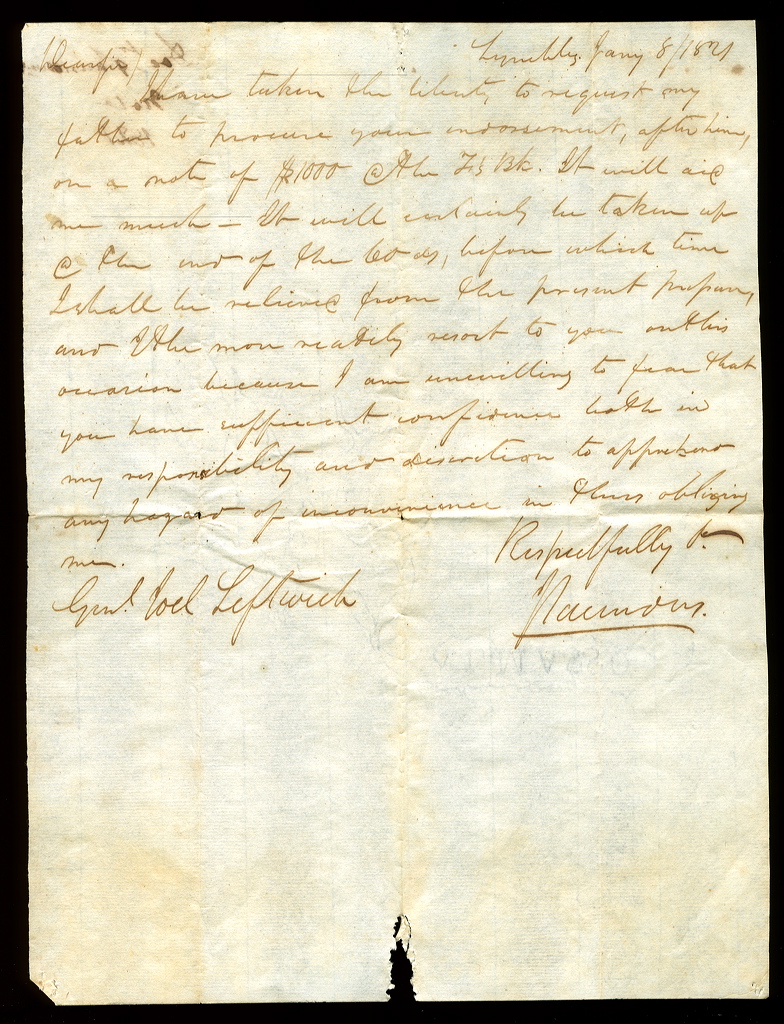 Lynchbg. Jany 8/1821
Dear sir/
I have taken the liberty to request my
father to procure your endorsement, after him,
on a note of $1000 @ the F's Bk. It will aid
me much – It will certainly be taken up
@ the end of the 60 ds, before which time
I shall be relieved from the present pressure,
and I the more readily resort to you on this
occasion because I am unwilling to fear that
you have sufficient confidence both in
my responsibility and discretion to apprehend
any hazard of inconvenience in thus obliging
me.
Respectfully &c
Genl. Joel Leftwich